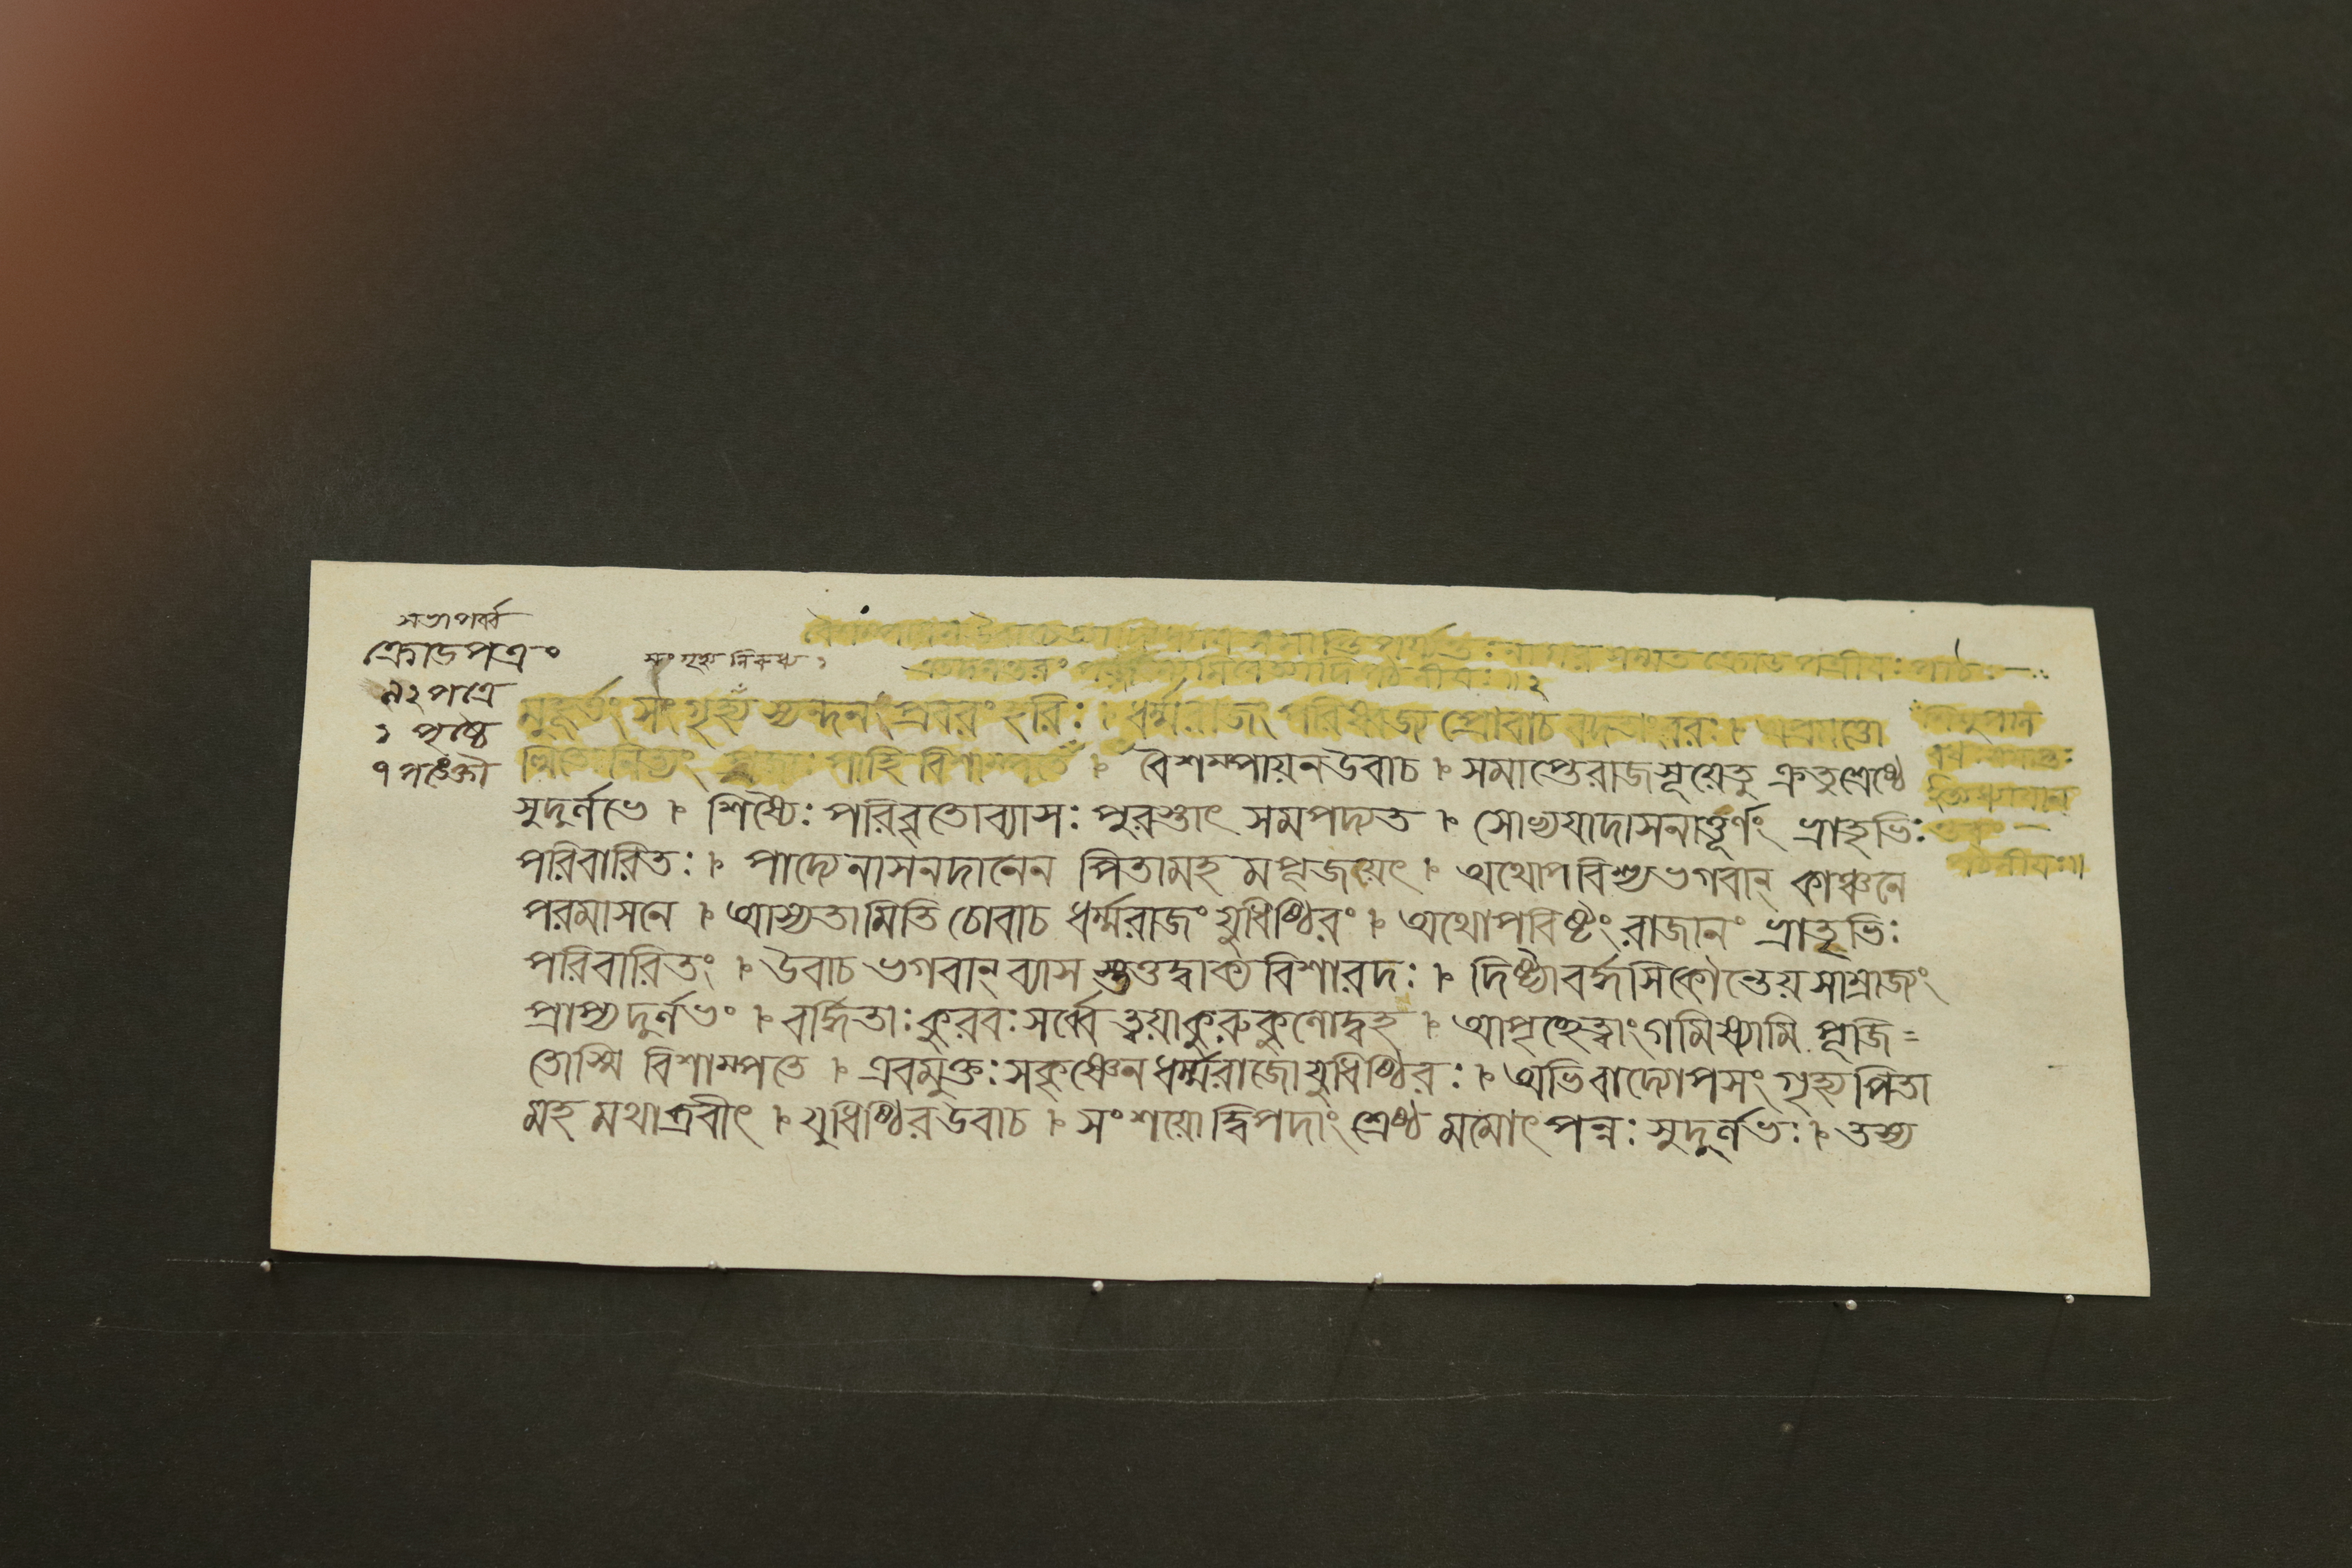 সভাপর্ব্ব
ক্রোডপত্রং
৭২ পত্রে
১ পৃষ্ঠে
৭ পঙ্ক্তৌ
সংগৃহ্য নিরুধ্য ১
বৈশম্পায়ন উবাচ ক্রোডপত্রীয়ঃ পাঠঃ
এতদনন্তরং পঠনীয়ঃ ॥ ২
মুহূর্ত্তং সংগৃহ্য স্যন্দনপ্রবরং হরিঃ । ধর্ম্মরাজং পরিষ্বজ্য প্রোবাচ বদতাংবরঃ । অপ্রমত্তো
স্থিতোনিত্যং প্রজাঃ পাহি বিশাম্পতে । বৈশম্পায়নউবাচ । সমাপ্তেরাজসূয়েতু ক্রতুশ্রেষ্ঠে
সুদুর্লভে । শিষ্যৈঃ পরিবৃতোব্যাসঃ পুরস্তাৎ সমপদ্যত । সোভ্যয়াদাসনাত্তূর্ণং ভ্রাতৃভিঃ
পরিবারিতঃ । পাদ্যেনাসনদানেন পিতামহ মপূজয়েৎ । অথোপবিশ্যভগবান্ কাঞ্চনে
পরমাসনে । আস্যতামিতি চোবাচ ধর্ম্মরাজং যুধিষ্ঠিরং । অথোপবিষ্টংরাজানং ভ্রাতৃভিঃ
পরিবারিতং । উবাচ ভগবান্ ব্যাস স্তত্তদ্বাক্য বিশারদঃ । দিষ্ট্যাবর্দ্ধসিকৌন্তেয়সাম্রাজং
প্রাপ্যদুর্লভং । বর্দ্ধিতাঃকুরবঃসর্ব্বে ত্বয়াকুরুকুলোদ্বহ । আপৃচ্ছেত্বাংগমিষ্যামি পূজি=
তোস্মি বিশাম্পতে । এবমুক্তঃসকৃষ্ণেনধর্ম্মরাজোযুধিষ্ঠিরঃ । অভিবাদ্যোপসংগৃহ্যপিতা
মহ মথাব্রবীৎ । যুধিষ্ঠিরউবাচ । সংশয়োদ্বিপদাংশ্রেষ্ঠ মমোৎপন্নঃ সুদুর্লভঃ । তস্য
শিশুপাল
পঠনীয়ঃ॥